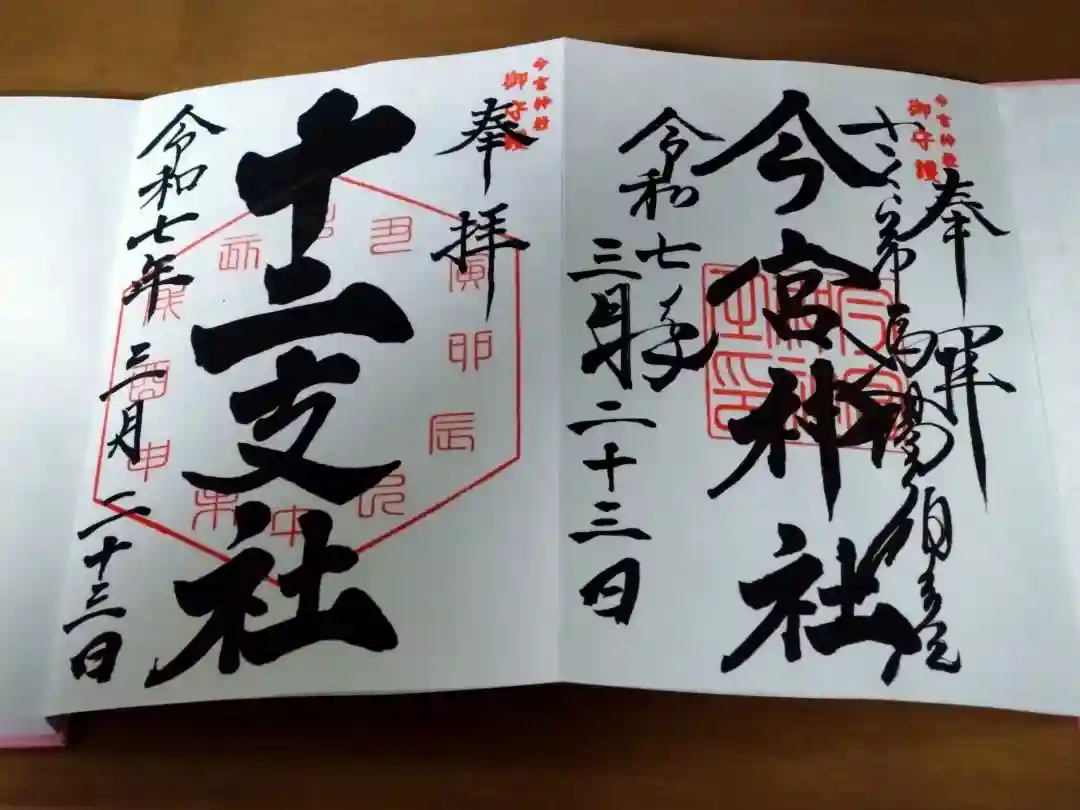 今宮神社
御守護
奉拝
今宮神社
令和七年
三月二十三日
今宮神社
御守護
奉拝
十二支社
丑
寅
卯
辰
巳
午
未
申
酉
戌
令和七年三月二十三日